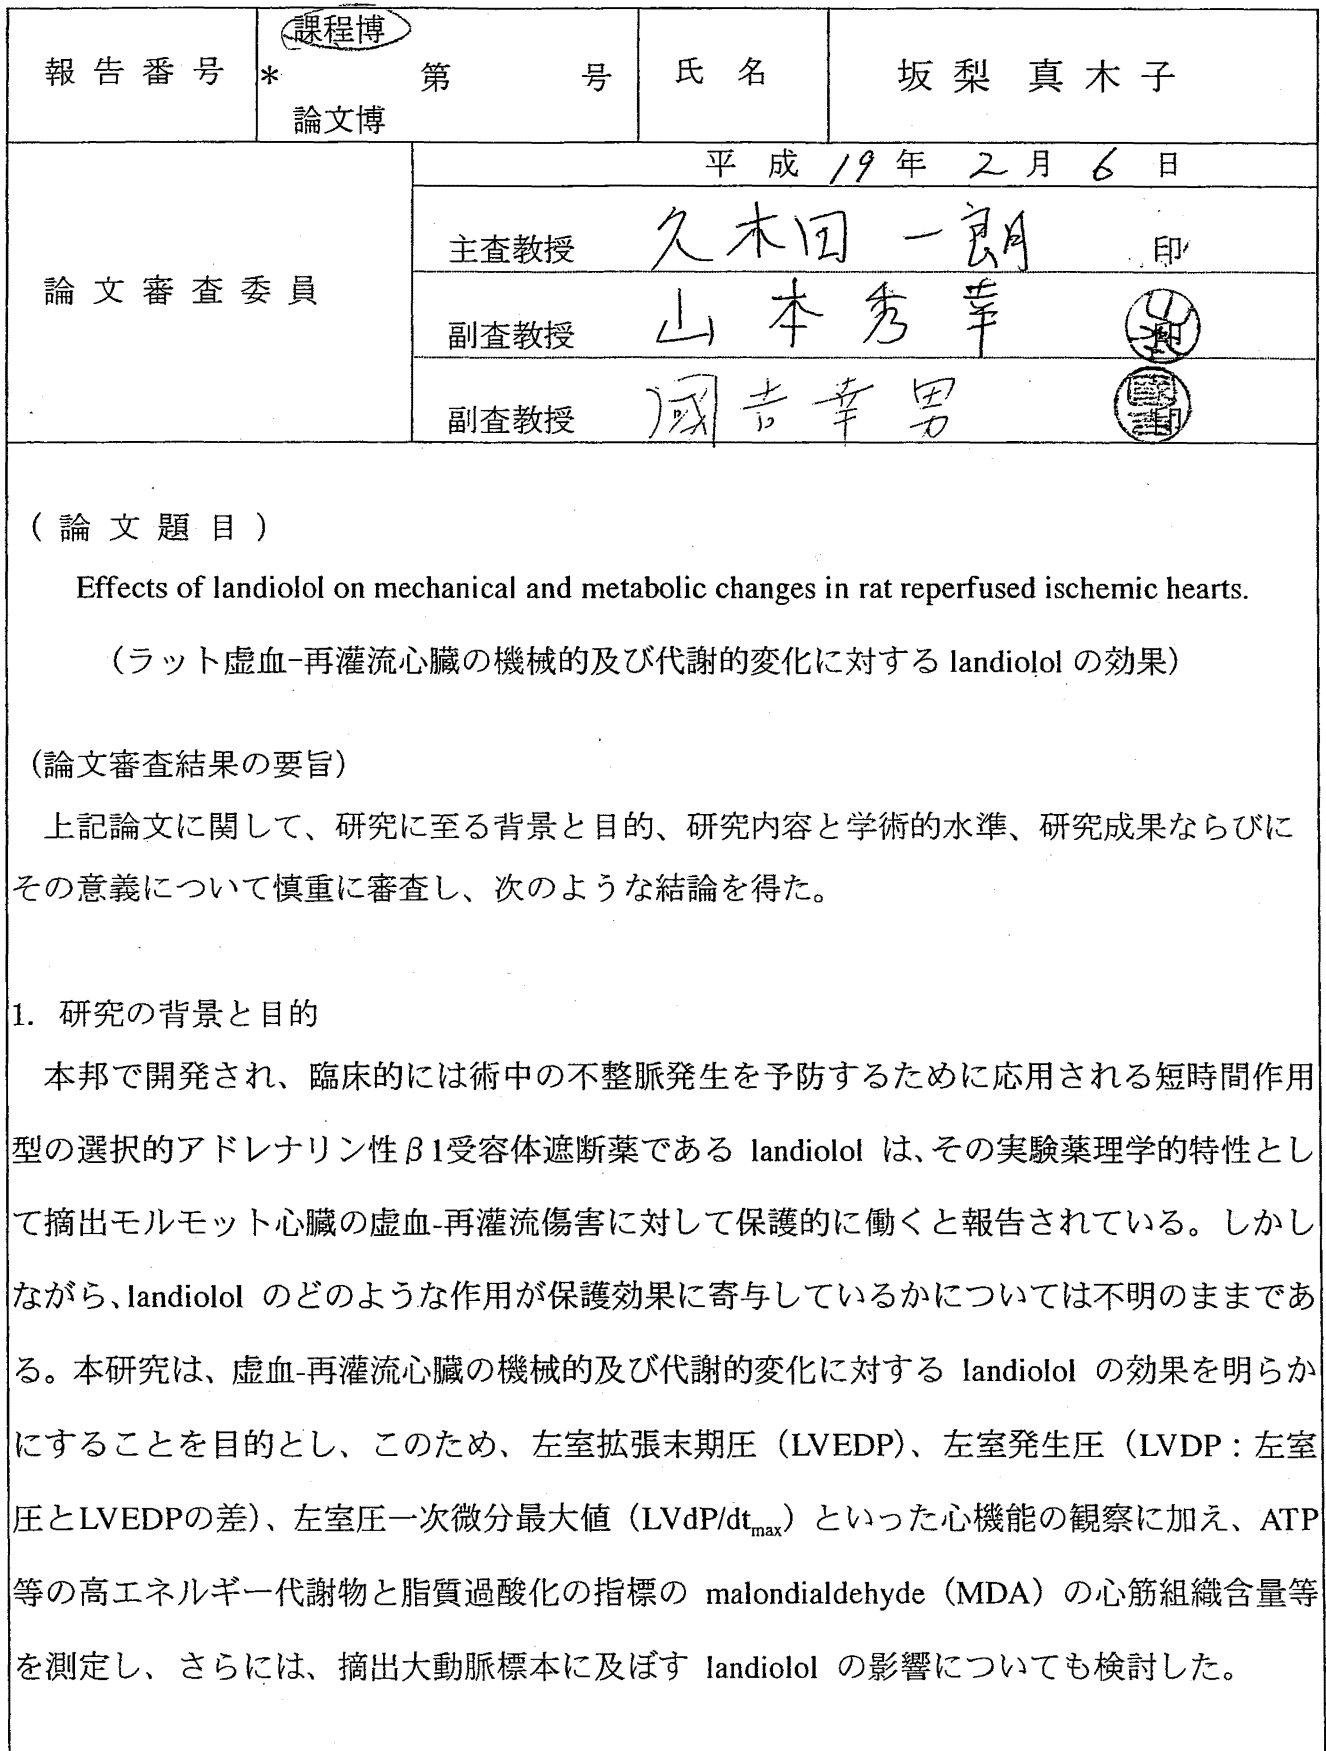 課程博
報告番号 * 第 号 氏名 坂梨 真木子
論文博
平成 19年 2月 6日
論文審査委員
主査教授 久木田 一朗 印
副査教授 山本秀幸
副査教授 國吉幸男
(論文題目)
Effects of landiolol on mechanical and metabolic changes in rat reperfused ischemic hearts.
(ラット虚血-再灌流心臓の機械的及び代謝的変化に対する landiolol の効果)
(論文審査結果の要旨)
上記論文に関して、研究に至る背景と目的、研究内容と学術的水準、研究成果ならびに
その意義について慎重に審査し、次のような結論を得た。
1. 研究の背景と目的
本邦で開発され、臨床的には術中の不整脈発生を予防するために応用される短時間作用
型の選択的アドレナリン性β1受容体遮断薬である landiolol は、その実験薬理学的特性とし
て摘出モルモット心臓の虚血-再灌流傷害に対して保護的に働くと報告されている。しかし
ながら、landiolol のどのような作用が保護効果に寄与しているかについては不明のままであ
る。本研究は、虚血-再灌流心臓の機械的及び代謝的変化に対する landiolol の効果を明らか
にすることを目的とし、このため、左室拡張末期圧（LVEDP）、左室発生圧（LVDP：左室
圧とLVEDPの差）、左室圧一次微分最大値（LVdP/dtmax）といった心機能の観察に加え、ATP
等の高エネルギー代謝物と脂質過酸化の指標の malondialdehyde（MDA）の心筋組織含量等
を測定し、さらには、摘出大動脈標本に及ぼす landiolol の影響についても検討した。